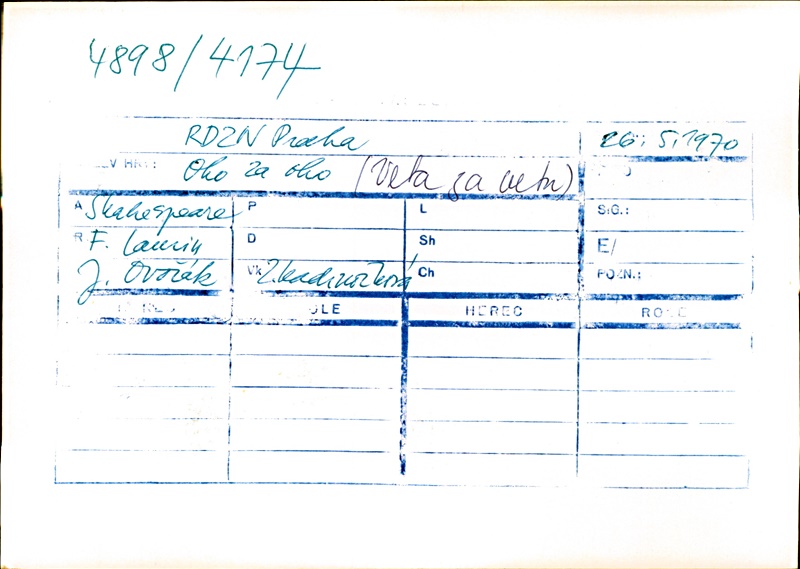 4898/4174
RDZN Praha 26. 5. 1970
V HRY: Oko za oko (Veta za vetu)
A Skahespeare P L SIG.:
R F. Laurin D Sh E/
J. Dvořák Vk Ch POZN.:
HEREC ROLE